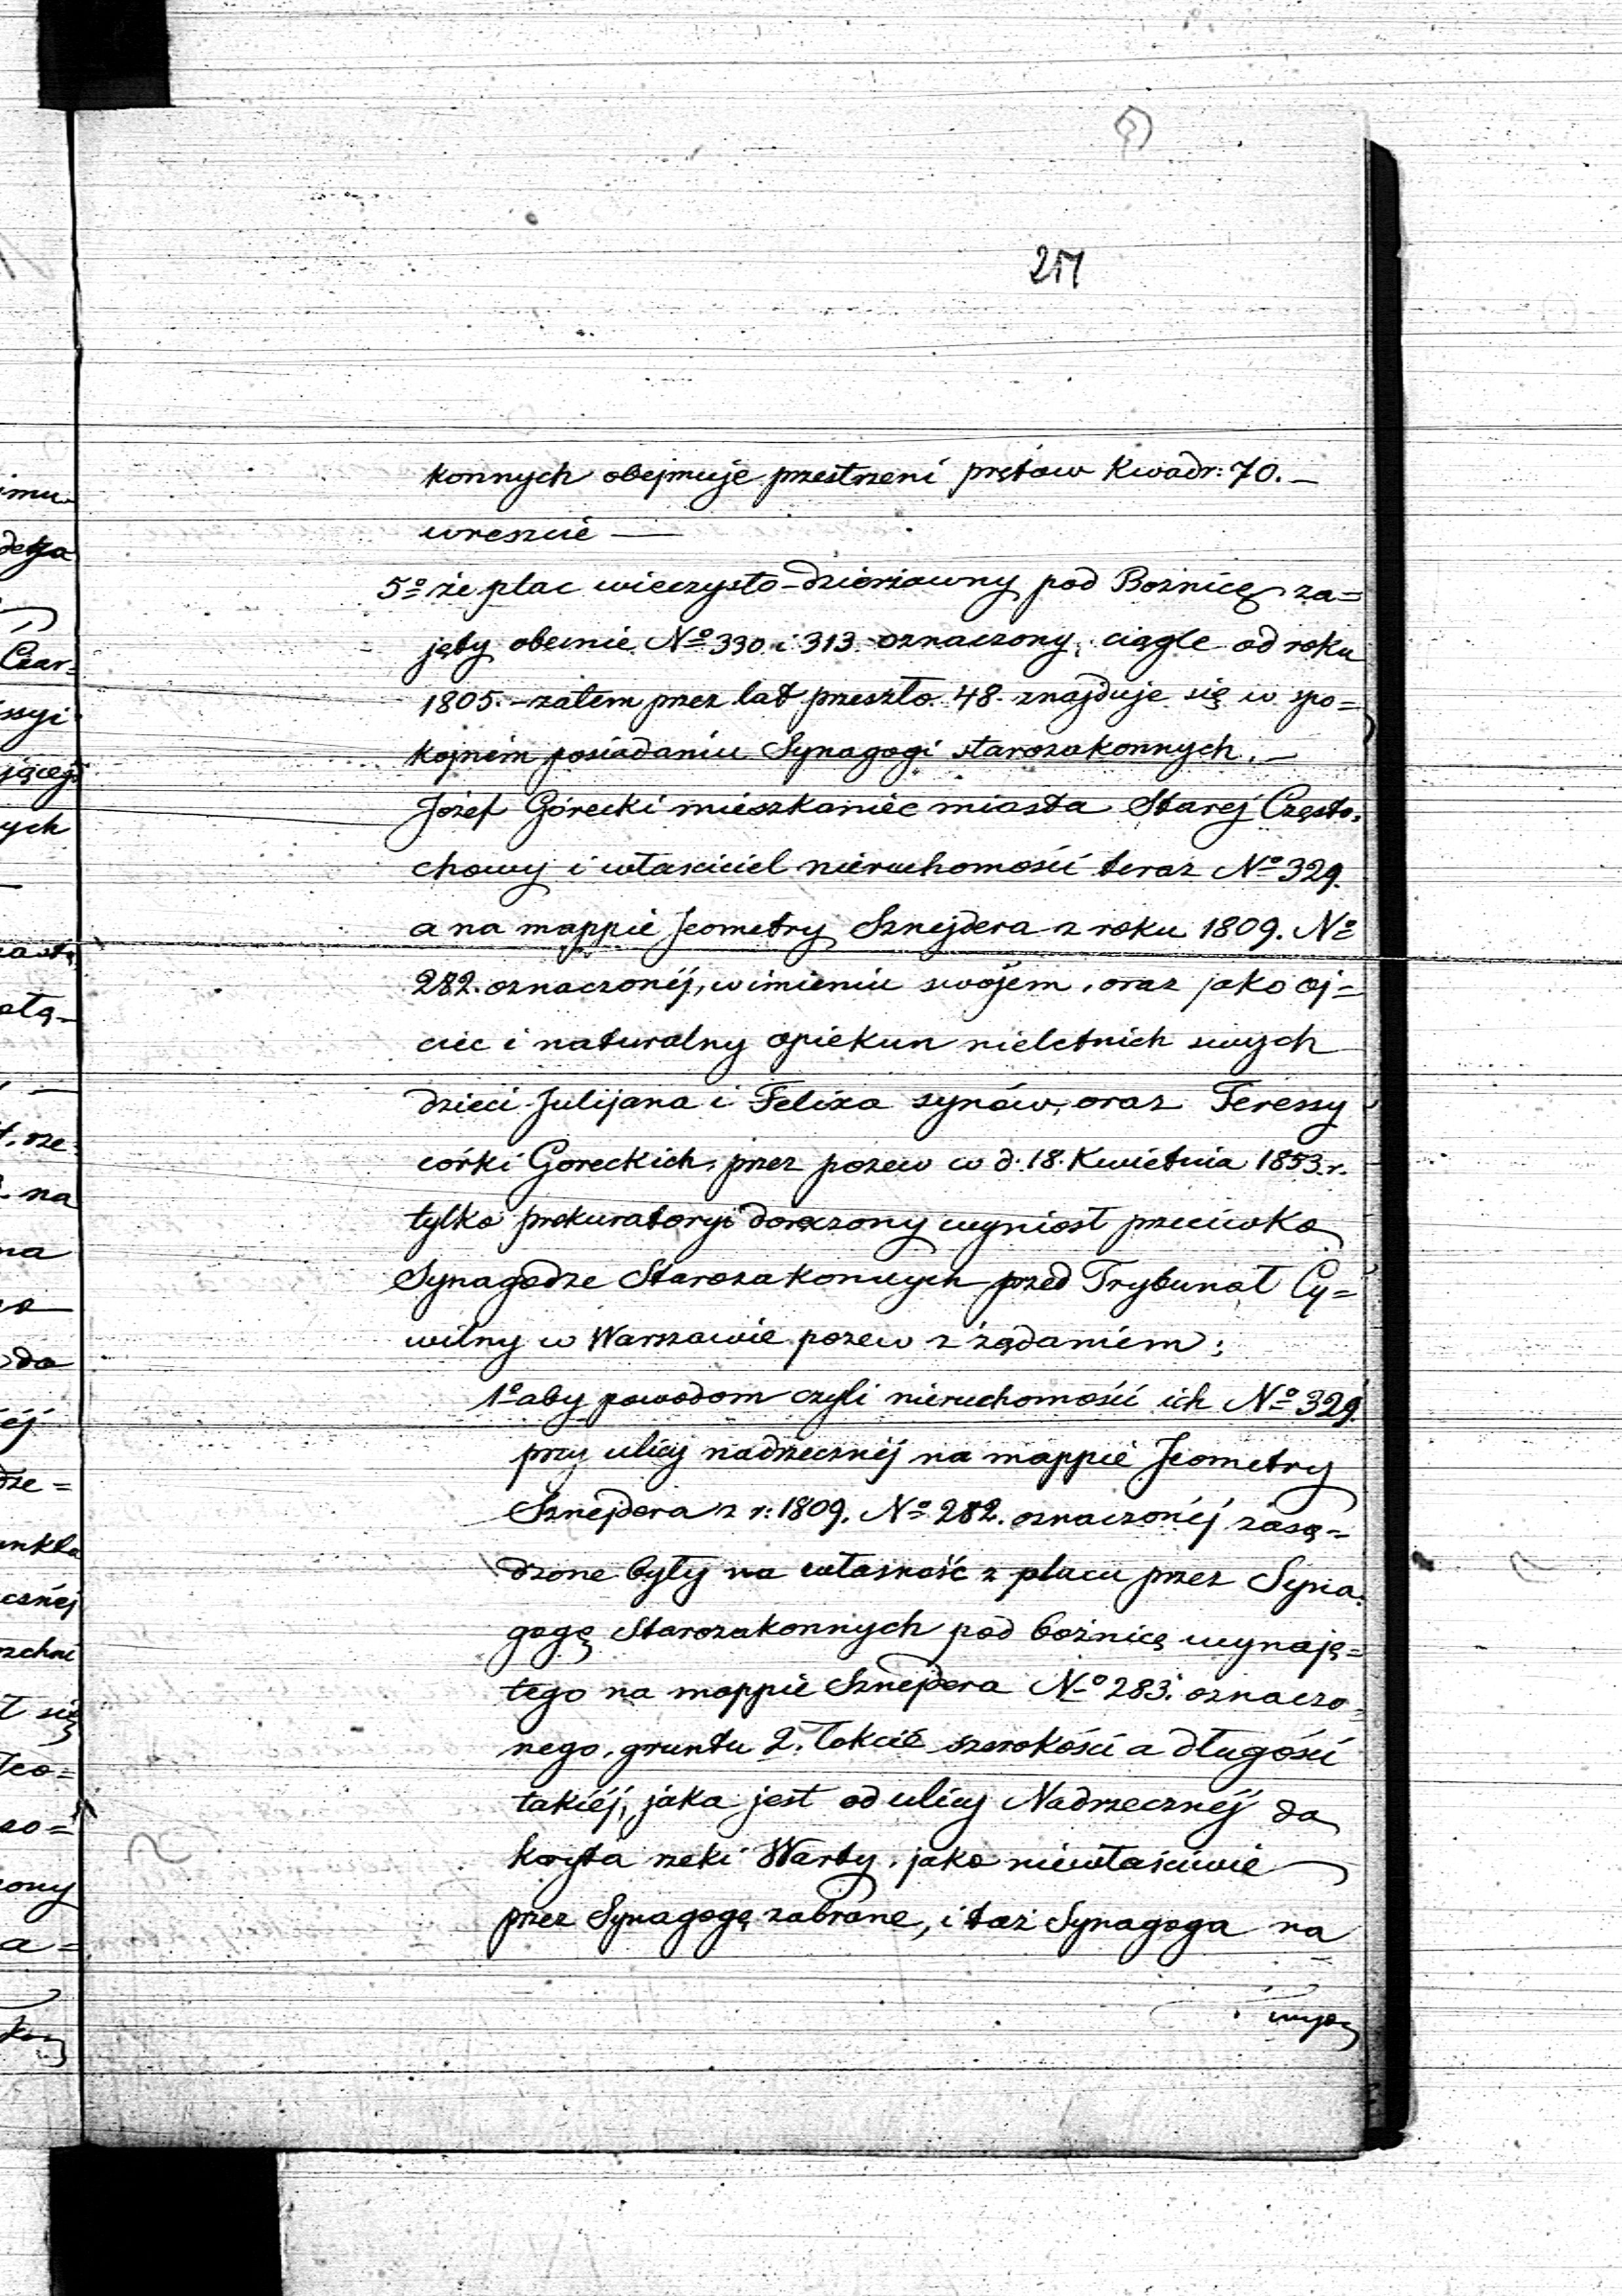 konnych obejmuje przestrzeni prętów Kwadr: 70. —
wreszcie —
5º że plac wieczysto-dzierżawny pod Bożnicę za=
jęty obecnie Nº 330 i 313 oznaczony, ciągle od roku
1805. – zatem przez lat przeszło 48. znajduje się w spo=
kojném posiadaniu Synagogi starozakonnych. —
Józef Górecki mieszkaniec miasta Starej Często=
chowy i właściciel nieruchomości teraz Nº 329.
a na mappie Jeometry Sznejdera z roku 1809. Nº
282. oznaczonéj, w imieniu swojém, oraz jako oj=
ciec i naturalny opiekun nieletnich swych
dzieci Julijana i Felixa synów, oraz Teressy
córki Goreckich, przez pozew w d. 18. Kwietnia 1853. r.
tylko prokuratoryi doręczony wyniósł przeciwko
Synagodze Starozakonnych przed Trybunał Cy=
wilny w Warszawie pozew z żądaniem:
1º aby powodom czyli nieruchomości ich Nº 329.
przy ulicy nadrzecznéj na mappie Jeometry
Sznejdera z r: 1809. Nº 282. oznaczonéj zasą=
dzone były na własność z placu przez Syna=
gogę Starozakonnych pod bożnicę wynaję=
tego na mappie Sznejdera Nº 283. oznaczo=
nego, gruntu 2. łokcie szerokości a długości
takiéj, jaka jest od ulicy Nadrzecznéj do
koryta rzeki Warty, jako niewłaściwie
przez Synagogę zabrane, i taż Synagoga na